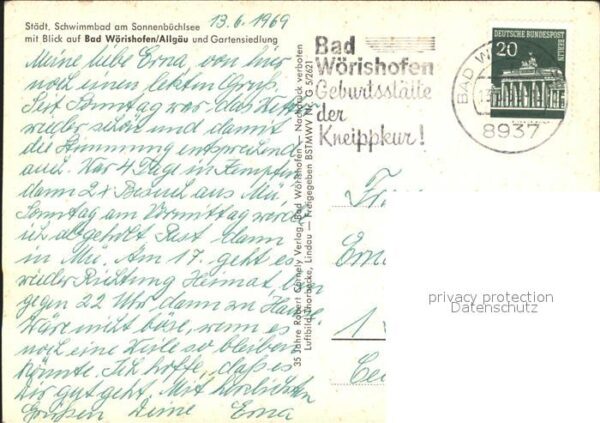 Städt. Schwimmbad am Sonnenbüchlsee
mit Blick auf Bad Wörishofen/Allgäu und Gartensiedlung
13.6.1969
Meine liebe Erna, von hier
noch einen letzten Gruß.
Seit Sonntag war das Wetter
wieder schön und damit
die Stimmung entsprechend
auch. War 4 Tage in Kempten
dann 2x Besuch aus Mü,
Sonntag am Vormittag werde
ich abgeholt Rest dann
in Mü. Am 17. geht es
wieder Richtung Heimat, bin
gegen 22 Uhr dann zu Hause
Wäre nicht böse, wenn es
noch eine Weile so bleiben
könnte. Ich hoffe, daß es
Dir gut geht. Mit herzlichen
Grüßen Deine Erna
35 Jahre Robert Cornely Verlag, Bad Wörishofen — Nachdruck verboten
Luftbild Thorbecke, Lindau — Freigegeben BSTMWV Nr. G 5/2621
Bad
Wörishofen
Geburtsstätte
der
Kneippkur!
BAD
8937
DEUTSCHE BUNDESPOST
BERLIN
20
Erna
1
privacy protection
Datenschutz